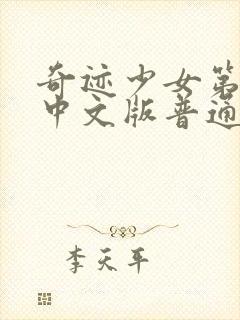 奇迹少女第
中文版普通
李天平